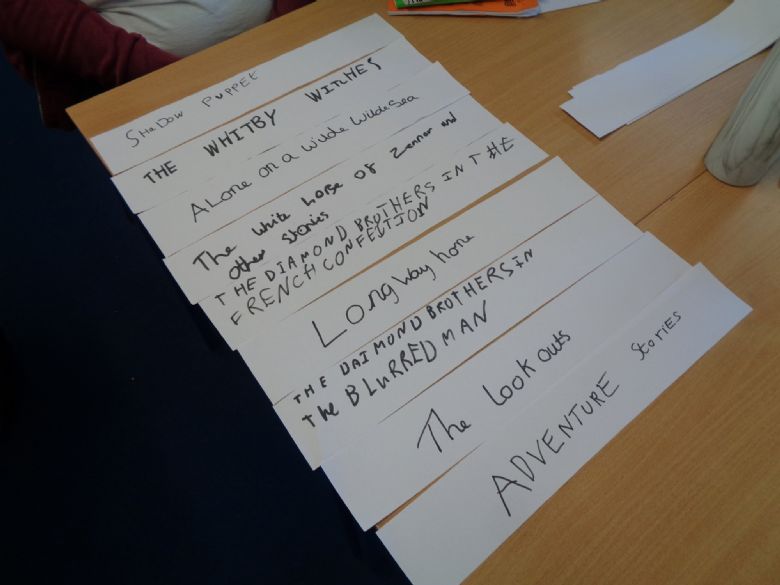 SHaDOW PUPPET
THE WHITBY WITCHES
ALone on a wide wide Sea
The white horse of Zennor and
other stories
THE DIAMOND BROTHERS IN THE
FRENCH CONFECTION
Long way home
THE DAIMOND BROTHERS IN
The BLURRED MAN
The Look outs
ADVENTURE Stories